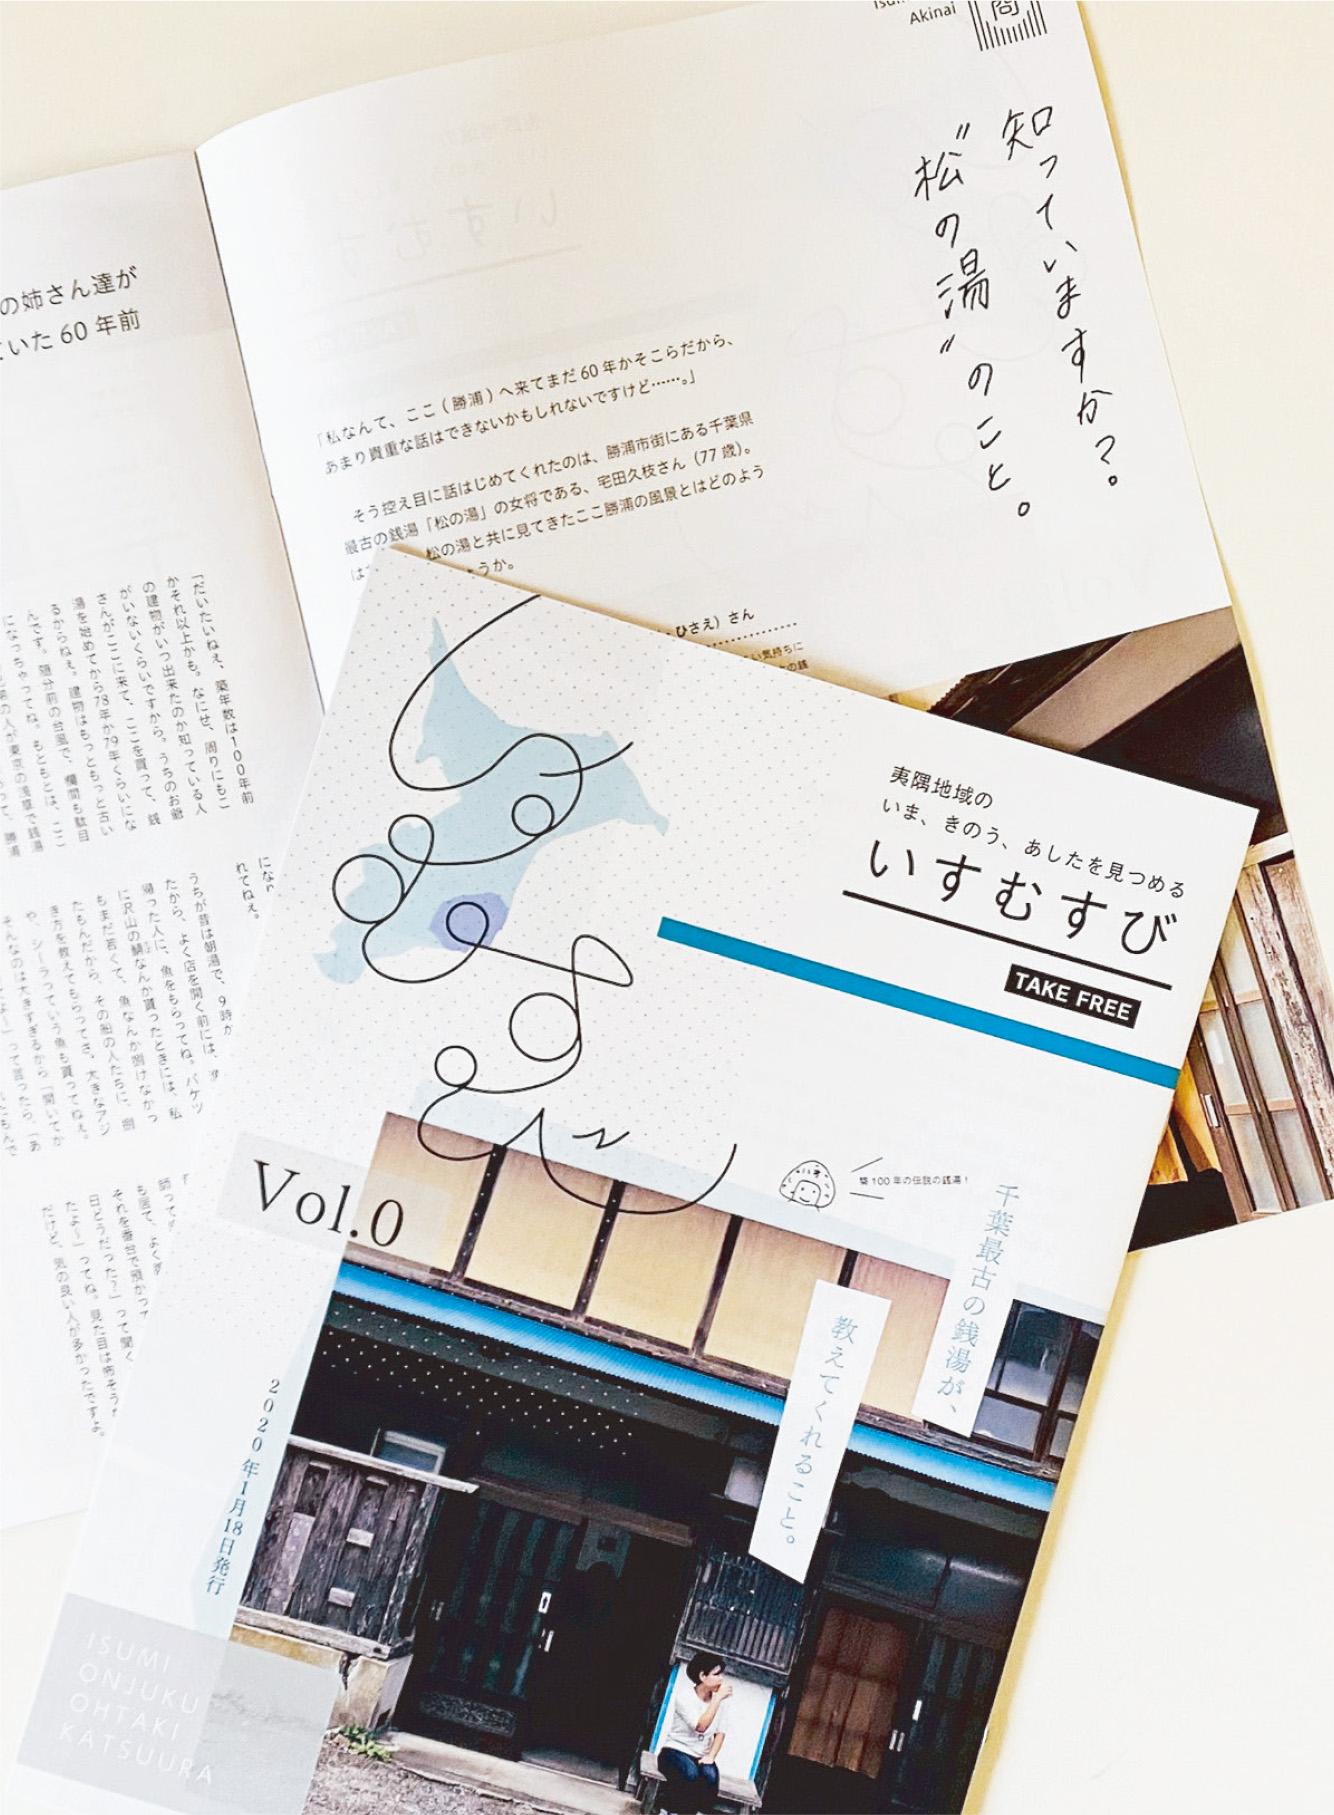 Akinai
商
知っていますか？。
"松の湯"のこと。
「私なんて、ここ（勝浦）へ来てまだ60年かそこらだから、
あまり貴重な話はできないかもしれないですけど……。」
そう控え目に話はじめてくれたのは、勝浦市街にある千葉県
最古の銭湯「松の湯」の女将である、宅田久枝さん（77歳）。
松の湯と共に見てきたここ勝浦の風景とはどのよう
うか。
ひさえ）さん
い気持ちに
の銭
の姉さん達が
いた60年前
「だいたいねぇ、築年数は100年前
かそれ以上かも。なにせ、周りにもこ
の建物がいつ出来たのか知っている人
がいないくらいですから。うちのお爺
さんがここに来て、ここを買って、銭
湯を始めてから78年か79年くらいにな
るからねぇ。建物はもっともっと古い
んです。随分前の台風で、欄間も駄目
になっちゃってね。もともとは、ここ
れてねぇ。
うちが昔は朝湯で、9時か
たから、よく店を開く前には、
帰った人に、魚をもらってね。バケツ
に沢山の鯖なんか貰ったときには、私
もまだ若くて、魚なんか捌けなかっ
たもんだから、その船の人たちに、捌
き方を教えてもらってさ。大きなアジ
や、シーラっていう魚も貰ってねぇ。
そんなのは大きすぎるから「開いてか
って言ったら、「あ
も居て、よく
それを番台で預かって
日どうだった？」って聞く
たよ〜」ってね。見た目は怖そう
だけど、気の良い人が多かったですよ。
夷隅地域の
いま、きのう、あしたを見つめる
いすむすび
TAKE FREE
いすむすび
Vol.0
築100年の伝説の銭湯！
千葉最古の銭湯が、
教えてくれること。
2020年1月18日発行
ISUMI
ONJUKU
OHTAKI
KATSUURA